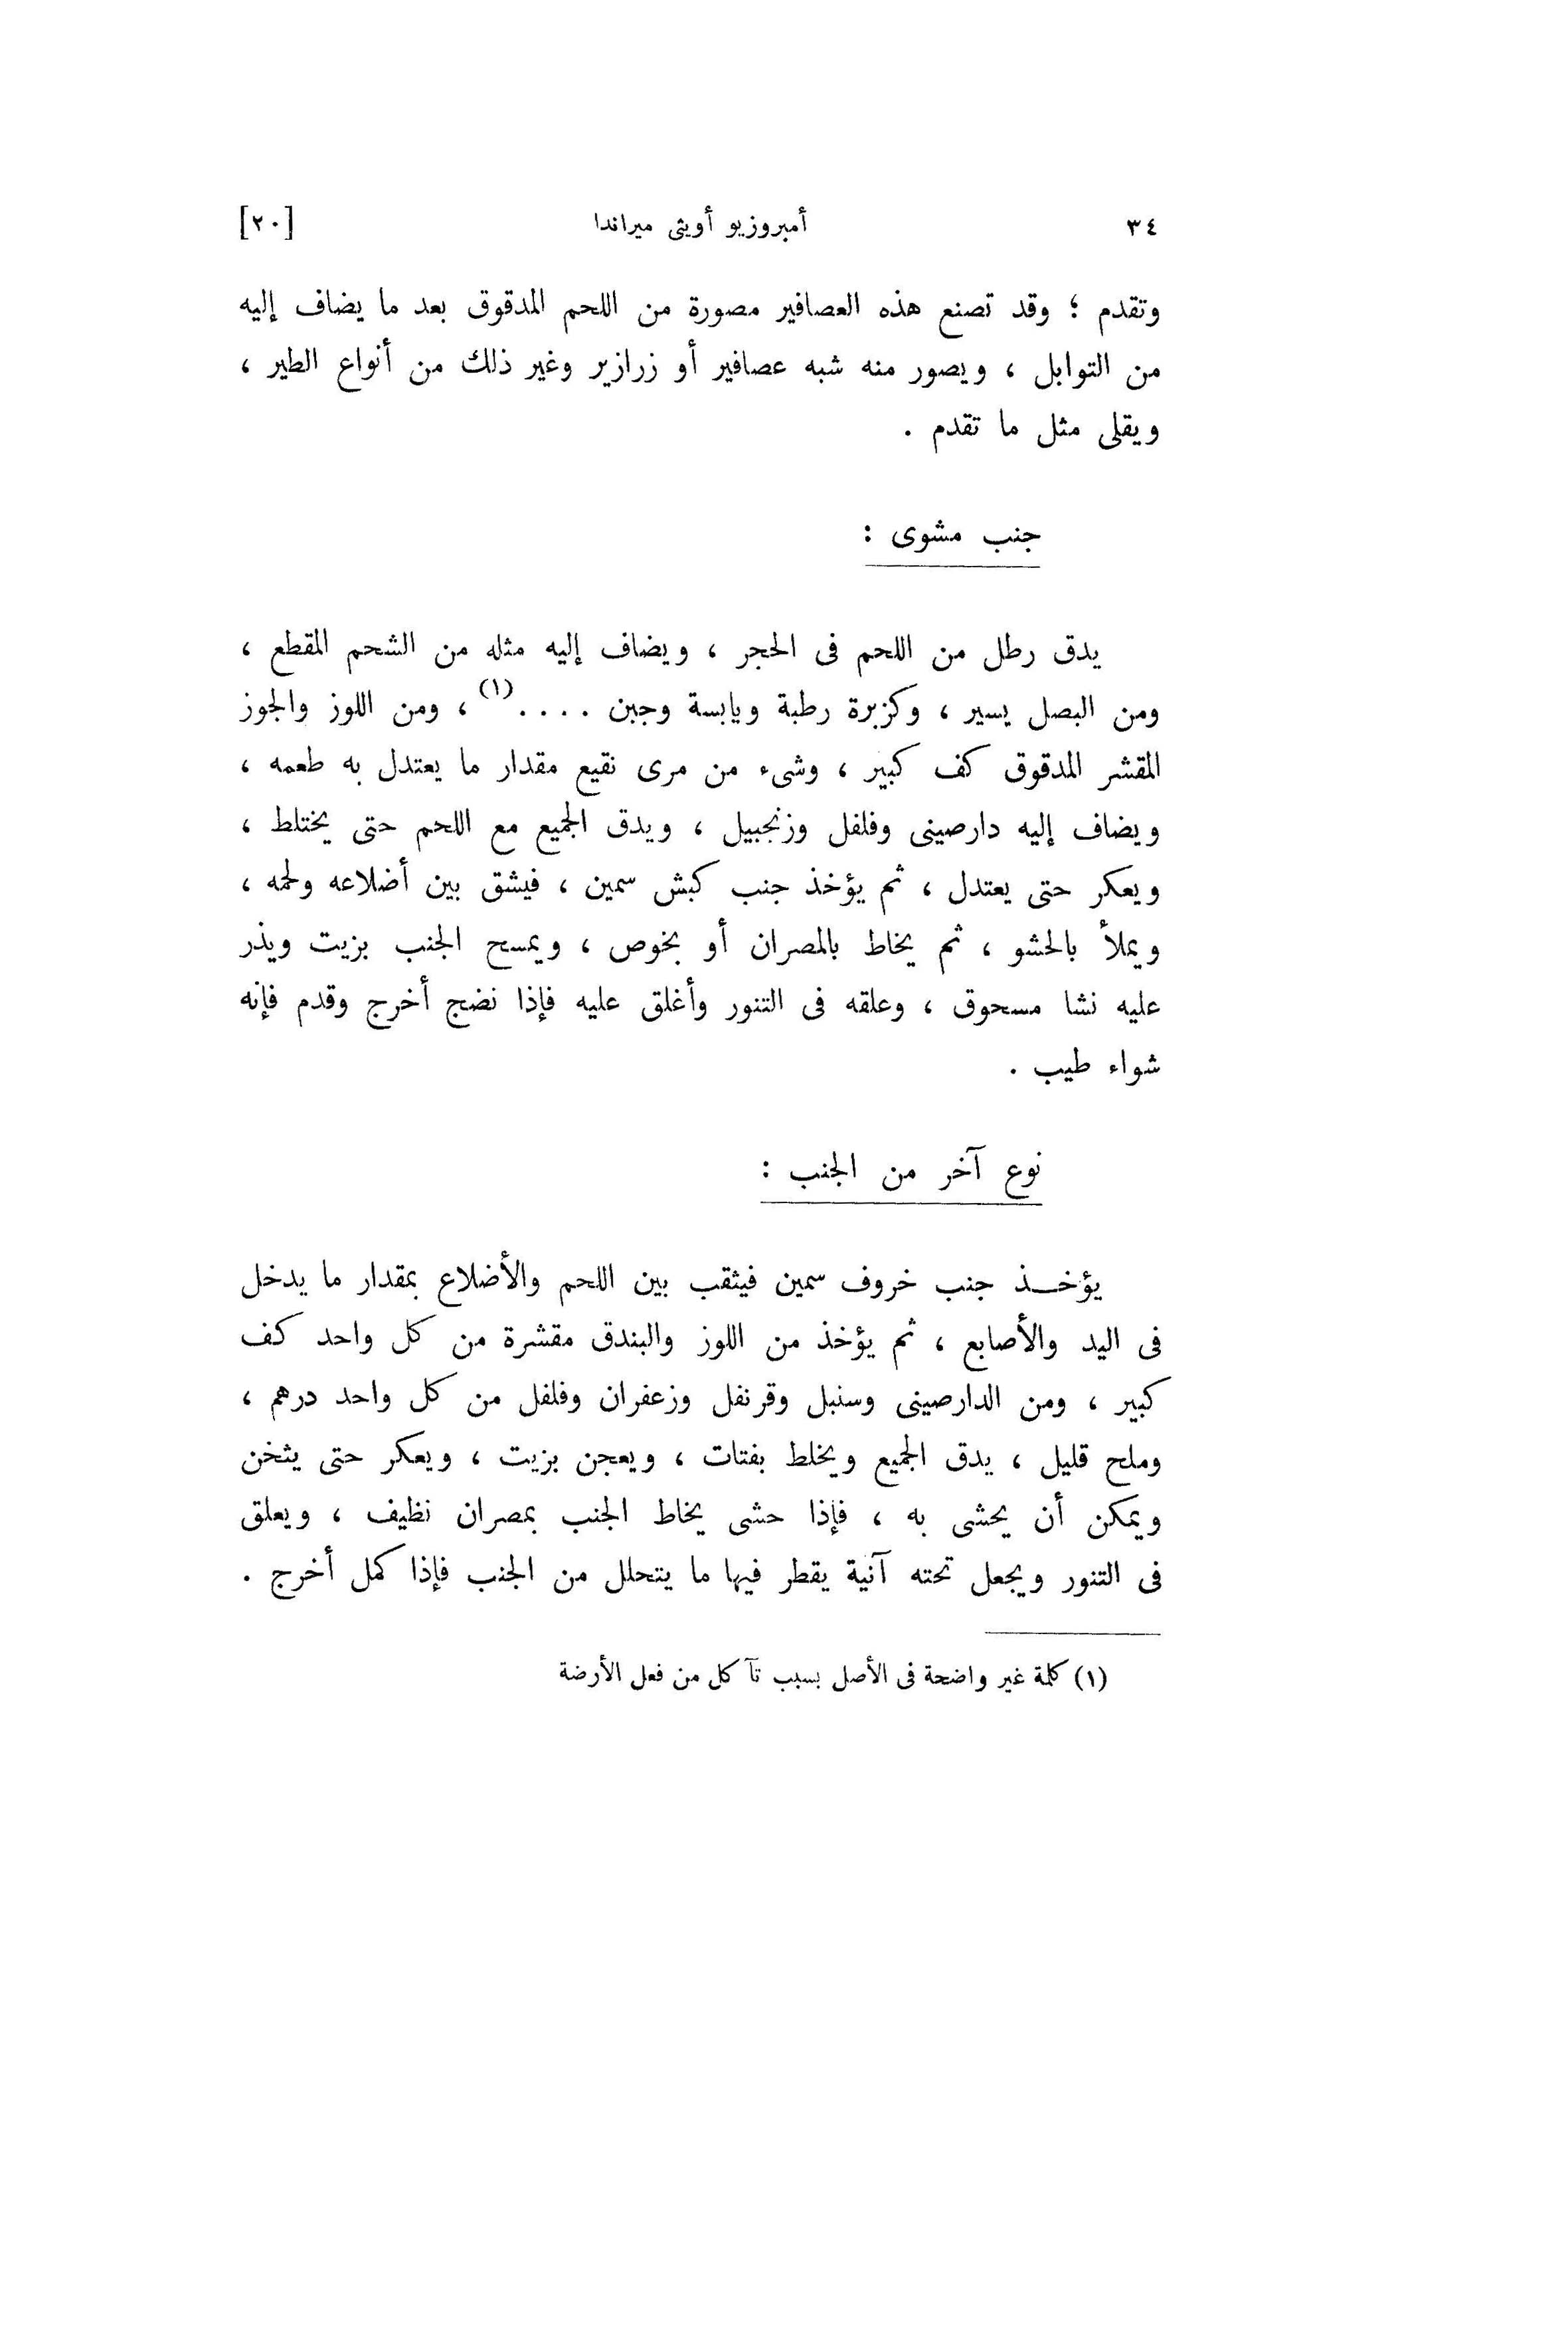 ٣٤ أمبروزيو أويثى ميراندا [٢٠]
وتقدم ؛ وقد تصنع هذه العصافير مصورة من اللحم المدقوق بعد ما يضاف إليه
من التوابل ، ويصور منه شبه عصافير أو زرازير وغير ذلك من أنواع الطير ،
ويقلى مثل ما تقدم .
جنب مشوى :
يدق رطل من اللحم فى الحجر ، ويضاف إليه مثله من الشحم المقطع ،
ومن البصل يسير ، وكزبرة رطبة ويابسة وجبن . . . .(١) ، ومن اللوز والجوز
المقشر المدقوق كف كبير ، وشىء من مرى نقيع مقدار ما يعتدل به طعمه ،
ويضاف إليه دارصينى وفلفل وزنجبيل ، ويدق الجميع مع اللحم حتى يختلط ،
ويعكر حتى يعتدل ، ثم يؤخذ جنب كبش سمين ، فيشق بين أضلاعه ولحمه ،
ويملأ بالحشو ، ثم يخاط بالمصران أو بخوص ، ويمسح الجنب بزيت ويذر
عليه نشا مسحوق ، وعلقه فى التنور وأغلق عليه فإذا نضج أخرج وقدم فإنه
شواء طيب .
نوع آخر من الجنب :
يؤخــذ جنب خروف سمين فيثقب بين اللحم والأضلاع بمقدار ما يدخل
فى اليد والأصابع ، ثم يؤخذ من اللوز والبندق مقشرة من كل واحد كف
كبير ، ومن الدارصينى وسنبل وقرنفل وزعفران وفلفل من كل واحد درهم ،
وملح قليل ، يدق الجميع ويخلط بفتات ، ويعجن بزيت ، ويعكر حتى يثخن
ويمكن أن يحشى به ، فإذا حشى يخاط الجنب بمصران نظيف ، ويعلق
فى التنور ويجعل تحته آنية يقطر فيها ما يتحلل من الجنب فإذا كمل أخرج .
(١) كلمة غير واضحة فى الأصل بسبب تآكل من فعل الأرضة